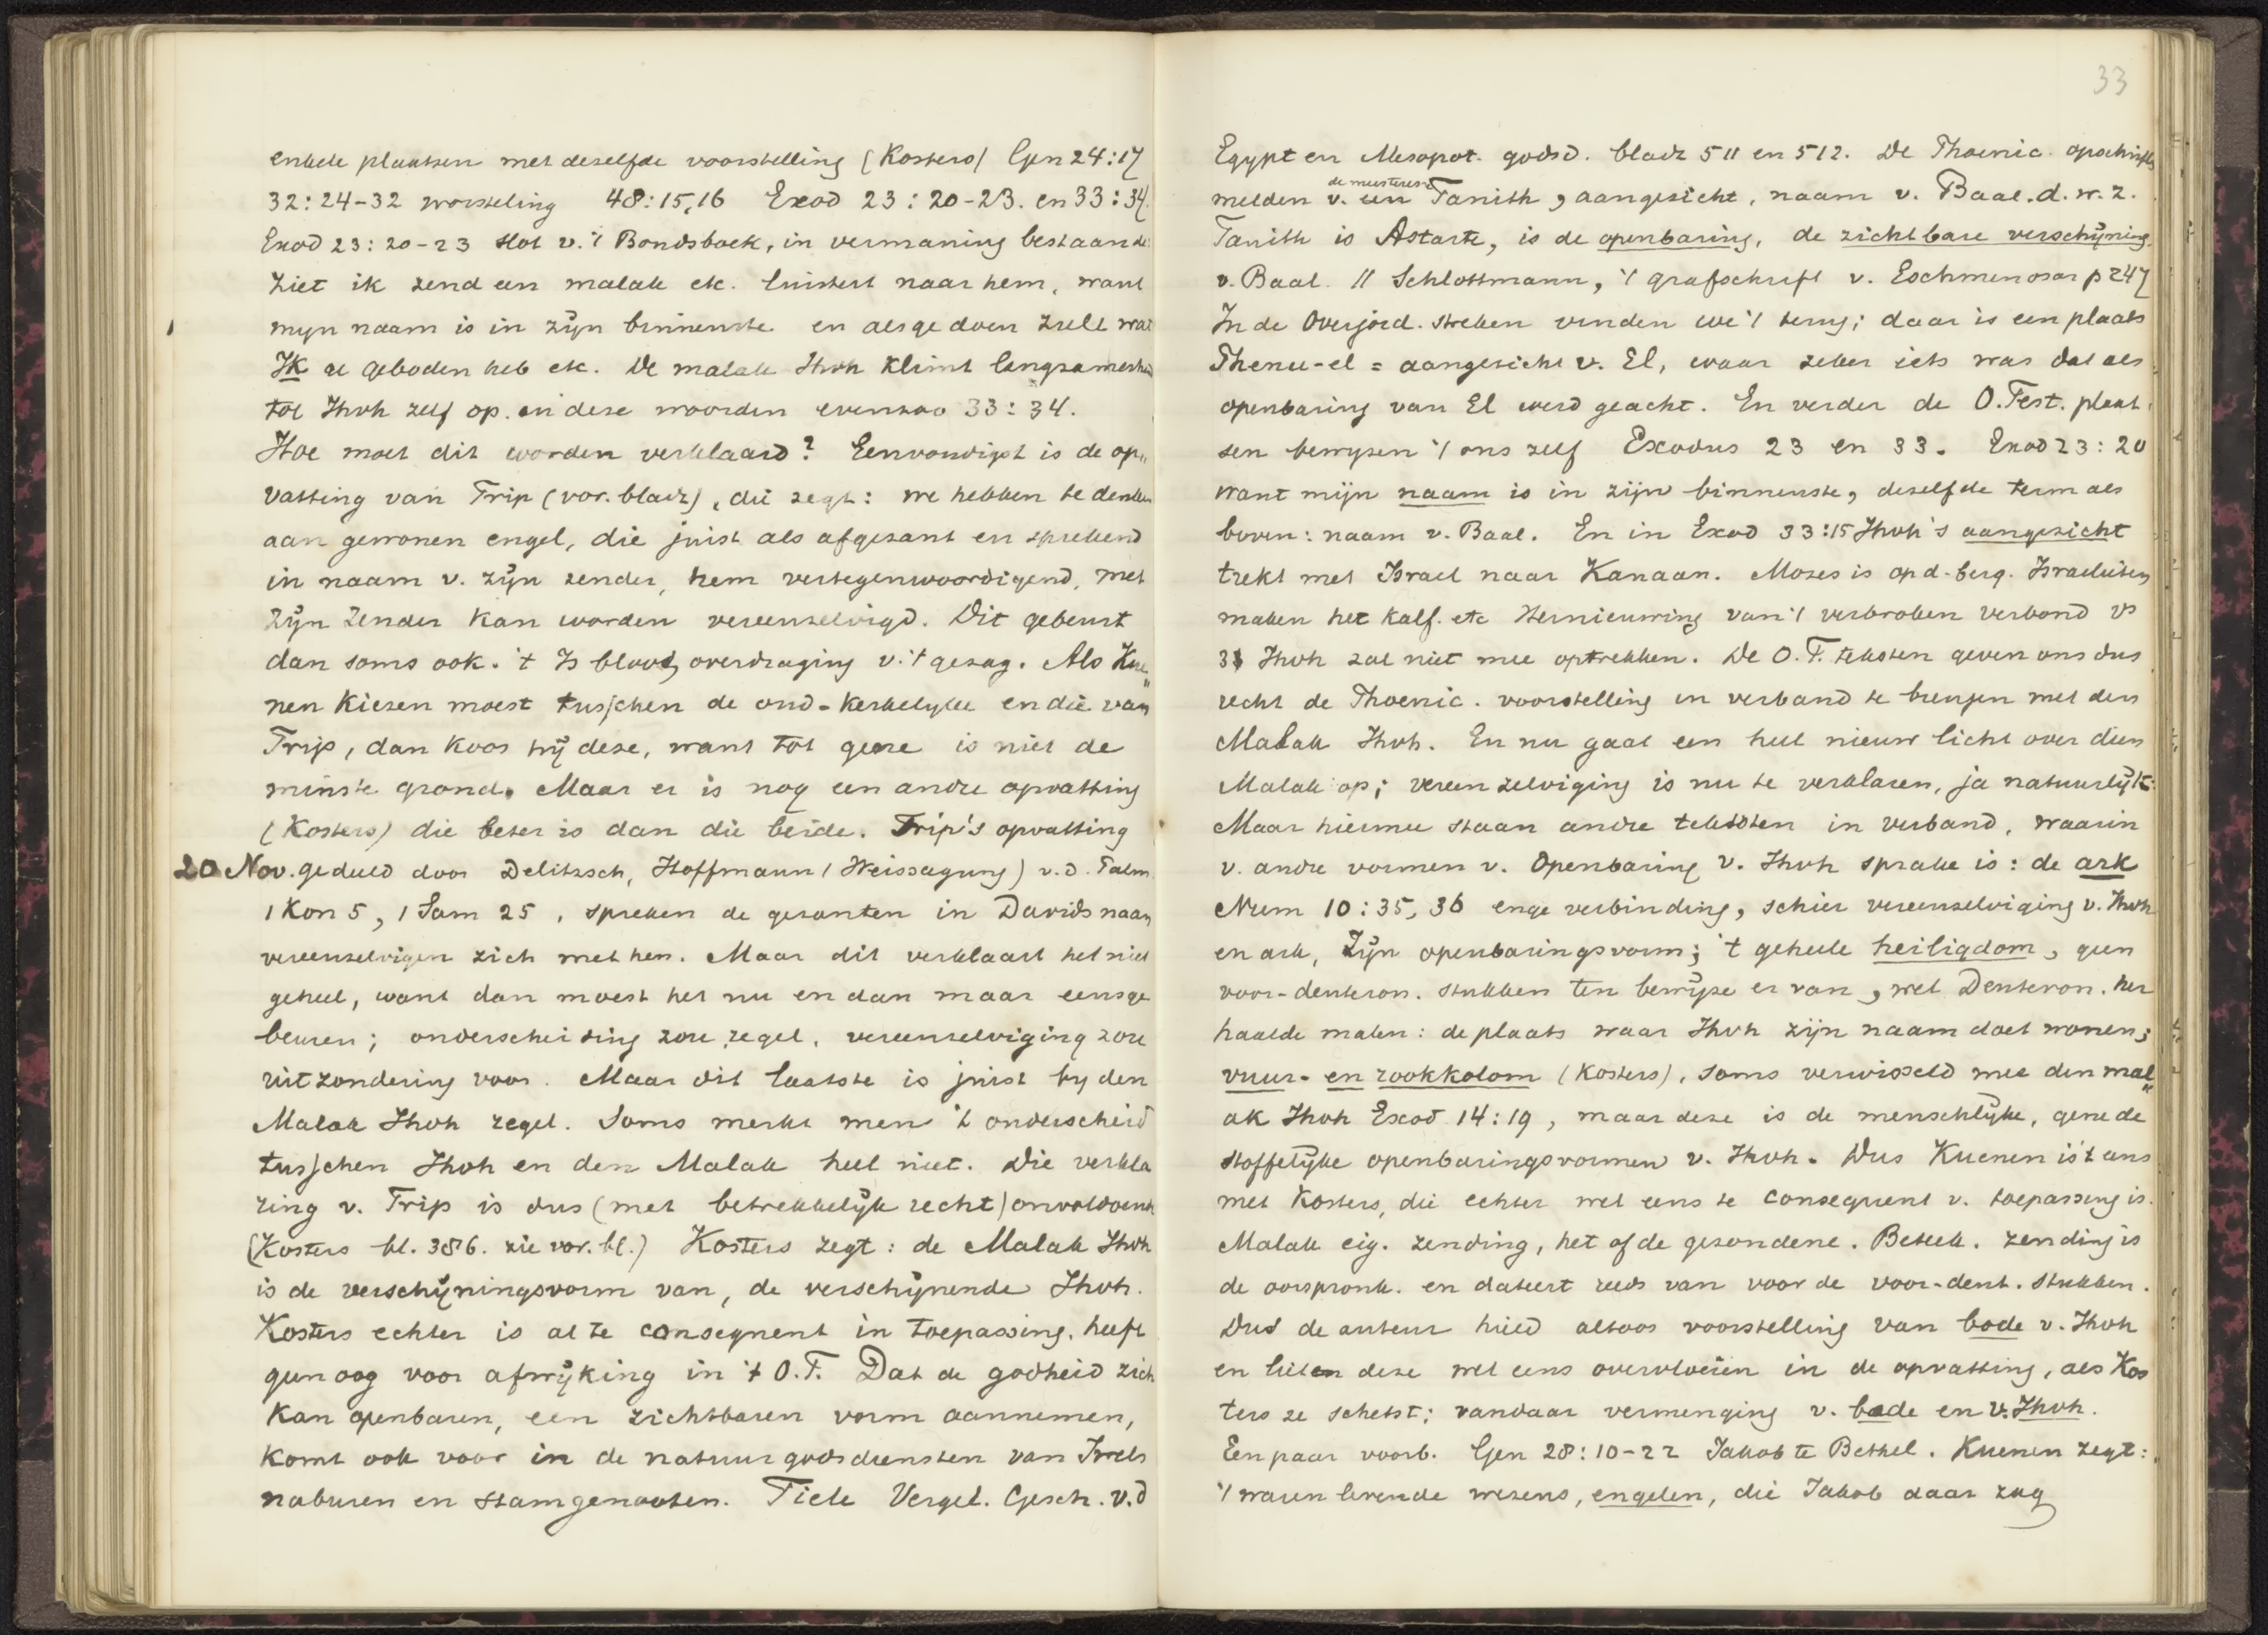 enkele plaatsen met deselfde voorstelling (Kosters) Gen 24:17
32:24-32 worsteling 48:15,16 Exod 23:20-23. en 33:34.
Exod 23:20-23 slot v. 't Bondsboek, in vermaning bestaande:
Ziet ik zend een malak etc. luistert naar hem, want
myn naam is in zijn binnenste en als ge doen zult wat
Ik u geboden heb etc. De malak Ihvh klimt langzamerhand
tot Ihvh zelf op. in deze woorden evenzoo 33:34.
Hoe moet dit worden verklaard? Eenvoudigst is de op„
vatting van Trip (vor. bladz), die zegt: we hebben te denken
aan gewonen engel, die juist als afgezant en sprekend
in naam v. zijn zender, hem vertegenwoordigend, met
zijn zender kan worden vereenzelvigd. Dit gebeurt
dan soms ook. 't Is bloot overdraging v. 't gezag. Als Kue„
nen kiezen moest tusschen de oud-kerkelyke en die van
Trip, dan koos hij deze, want tot gene is niet de
minste grond. Maar er is nog een andre opvatting
(Kosters) die beter is dan die beide. Trip's opvatting
20 Nov. gedeeld door Delitzsch, Hoffmann (Weissagung) v.d. Palm.
1 Kon 5, 1 Sam 25, spreken de gezanten in Davids naam
vereenzelvigen zich met hem. Maar dit verklaart het niet
geheel, want dan moest het nu en dan maar eens ge
beuren; onderscheiding zou regel, vereenzelviging zou
uitzondering voor. Maar dit laatste is juist by den
Malak Ihvh regel. Soms merkt men 't onderscheid
tusschen Ihvh en den Malak heel niet. Die verkla
ring v. Trip is dus (met betrekkelijk recht) onvoldoende
(Kosters bl. 386. zie vor. bl.) Kosters zegt: de Malak Ihvh
is de verschijningsvorm van, de verschijnende Ihvh.
Kosters echter is al te consequent in toepassing. heeft
geen oog voor afwijking in 't O.T. Dat de godheid zich
kan openbaren, een zichtbaren vorm aannemen,
komt ook voor in de natuurgodsdiensten van Isrels
naburen en stamgenooten. Tiele Vergel. Gesch. v.d
33
Egypt en Mesopot. godsd. bladz 511 en 512. De Phoenic. opschriften
de meesteres
melden v. een Tanith, aangezicht, naam v. Baal. d.w.z.
Tanith is Astarte, is de openbaring, de zichtbare verschijning.
v. Baal. // Schlottmann, 't grafschrift v. Eschmenosar p 247
In de Overjord. streken vinden we 't terug; daar is een plaats
Phenu-el = aangezicht v. El, waar zeker iets was dat als
openbaring van El werd geacht. En verder de O.Test. plaat„
sen bewyzen 't ons zelf Exodus 23 en 33. Exod 23:20
want mijn naam is in zijn binnenste, deselfde term als
boven: naam v. Baal. En in Exod 33:15 Ihvh's aangezicht
trekt met Israel naar Kanaan. Mozes is op d. berg. Israeliten
maken het kalf. etc Hernieuwing van 't verbroken verbond vs
3 Ihvh zal niet mee optrekken. De O.T. teksten geven ons dus
recht de Phoenic. voorstelling in verband te brengen met den
Malak Ihvh. En nu gaat een heel nieuw licht over dien
Malak op; vereenzelviging is nu te verklaren, ja natuurlijk:
Maar hiermee staan andre teksten in verband, waarin
v. andre vormen v. Openbaring v. Ihvh sprake is: de ark
Num 10:35, 36 enge verbinding, schier vereenzelviging v. Ihvh
en ark, Zijn openbaringsvorm; 't geheele heiligdom, geen
voor-deuteron. stukken ten bewijze er van, wel Deuteron. her
haalde malen: de plaats waar Ihvh zijn naam doet wonen;
vuur- en rookkolom (Kosters), soms verwisseld met den mal„
ak Ihvh Exod 14:19, maar deze is de menschlijke, gene de
stoffelijke openbaringsvormen v. Ihvh. Dus Kuenen is 't eens
met Kosters, die echter wel eens te consequent v. toepassing is.
Malak eig. zending, het of de gezondene. Beteek. zending is
de oorspronk. en dateert reeds van voor de voor-deut. stukken.
Dus de auteur hield altoos voorstelling van bode v. Ihvh
en lieten deze wel eens overvloeien in de opvatting, als Kos
ters ze schetst; vandaar vermenging v. bode en v. Ihvh.
Een paar voorb. Gen 28:10-22 Jakob te Bethel. Kuenen zegt:
't waren levende wezens, engelen, die Jakob daar zag